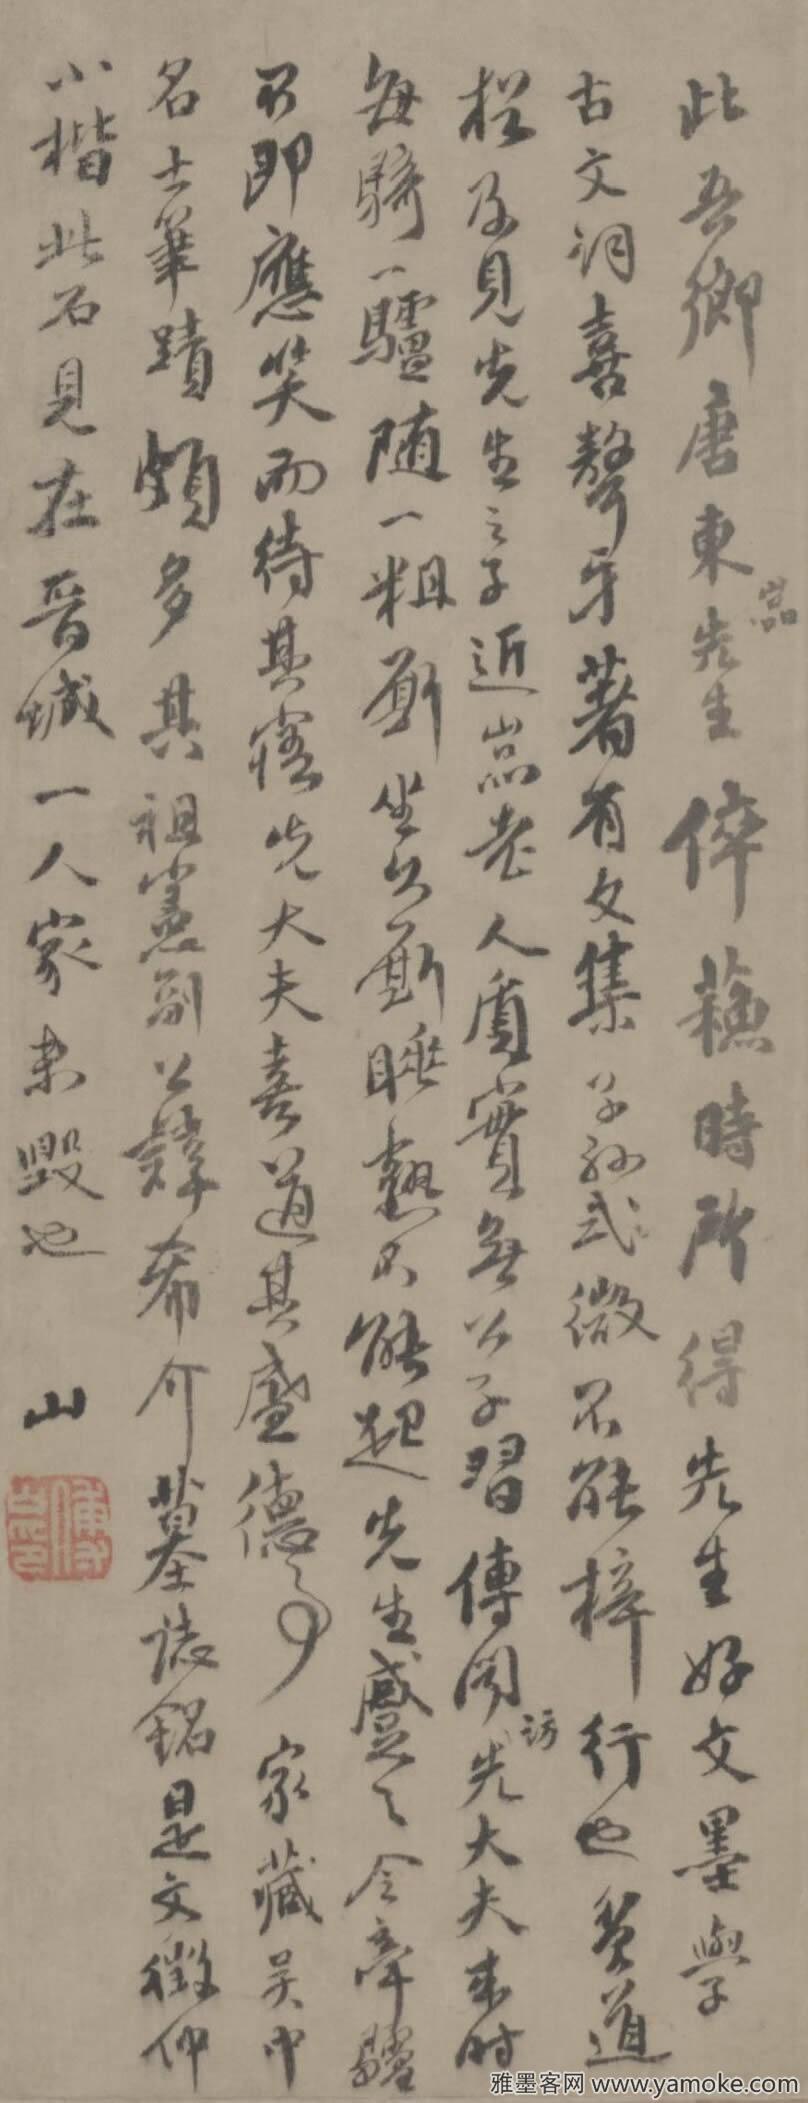 此吾鄉唐東嵓先生倅蘓時所得先生好文墨學
古文詞喜聱牙著有文集子孫式微不能梓行也貧道
猶及見先生之子近嵓老人質實無公子習傳聞訪先大夫來時
每騎一驢随一粗厮坐久厮睡熟不能起先生蹙之令牽驢
不即應笑而待其寤先大夫喜道其盛德事家藏吴中
名士筆蹟頗多其祖憲副公諱希介墓誌銘是文徵仲
小楷此石見在晋城一人家未毀也 山
雅墨客网 www.yamoke.com